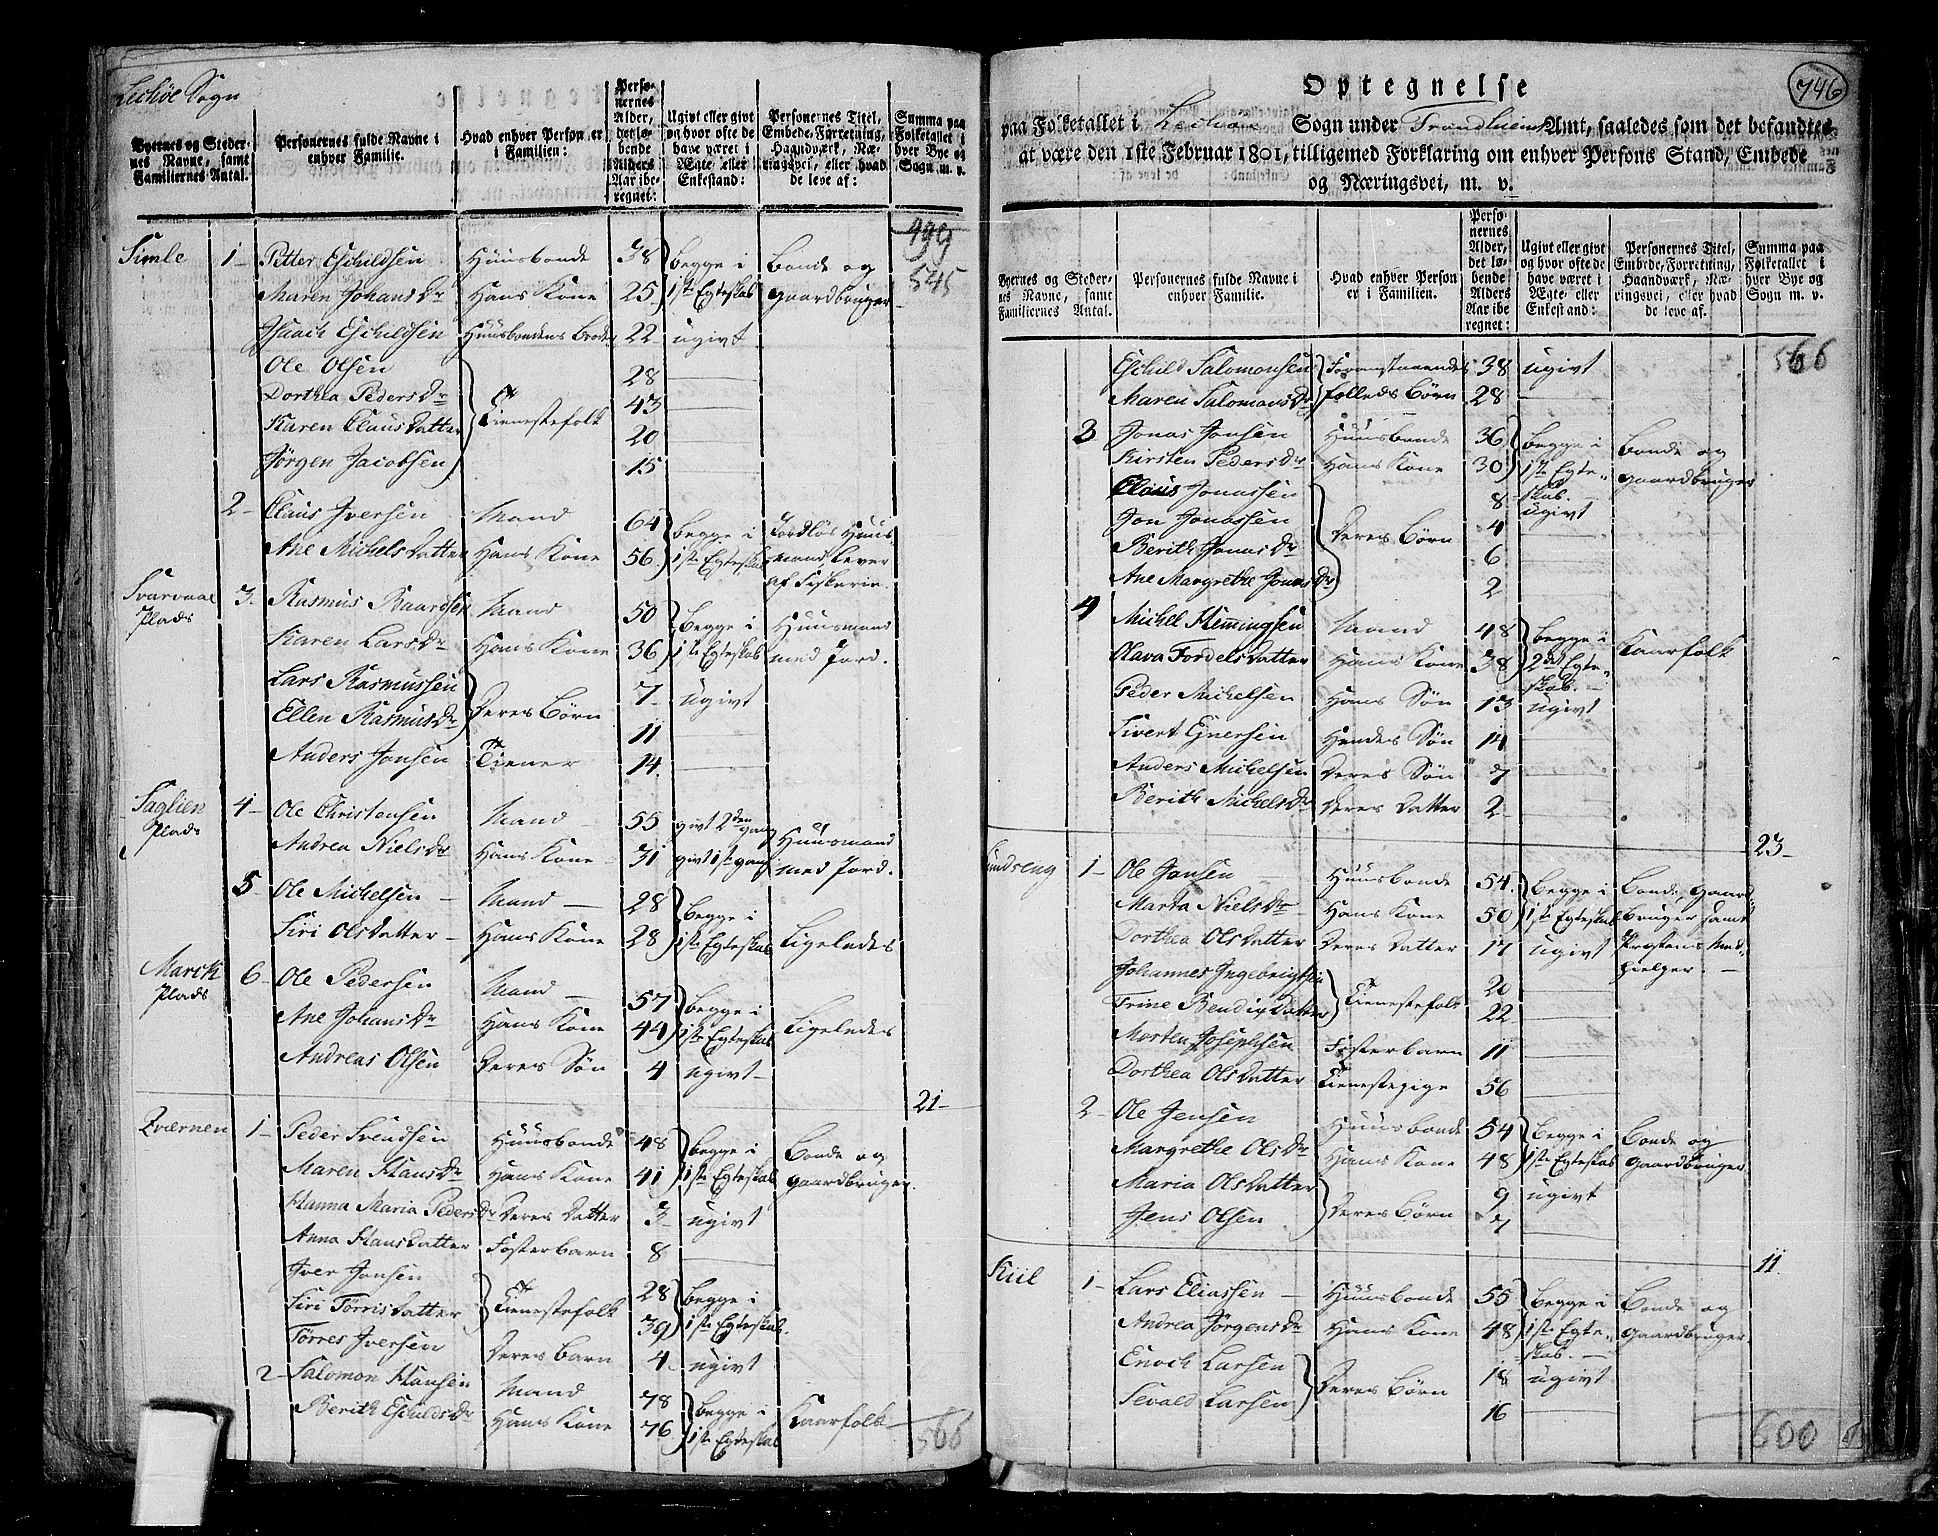 Lechøe Sogn
Byernes og Steder-
nes Navne, samt
Familiernes Antal.
Personernes fulde Navne i
enhver Familie.
Hvad enhver Person er
i Familien:
Perso-
nernes
Alder,
det lø-
bende
Alders
Aar ibe-
regnet:
Ugivt eller givt
og hvor ofte de
have været i
Ægte- eller
Enkestand:
Personernes Titel,
Embede, Forretning,
Haandværk, Næ-
ringsvei, eller hvad
de leve af:
Summa paa
Folketallet i
hver Bye og
Sogn m. v.
499
545
Simle 1- Petter Eschildsen Huusbonde 38 begge i Bonde og
Maren Johans Dr Hans Kone 25 1ste Egteskab gaardbruger
Isach Eschildsen Huusbondens Broder 22 ugivt
Ole Olsen 28
Dorthea Peders Dr Tienestefolk 43
Karen Claus Datter 20
Jørgen Jacobsen 15
2- Claus Iversen Mand 64 begge i Jordløs Huus-
Ane Michels Datter Hans Kone 56 1ste Egteskab mand, Lever
af Fiskerie.
Svarvaal 3. Rasmus Baardsen Mand 50 begge i Huusmand
Plads Karen Lars Dr Hans Kone 36 1ste Egteskab med Jord.
Lars Rasmussen Deres Børn 7- ugivt
Ellen Rasmus Dr 11
Anders Jonsen Tiener 14
Saglien 4- Ole Christensen Mand 55 givt 2den gang Huusmand
Plads Andrea Niels Dr Hans Kone 31 givt 1ste gang med Jord.
5- Ole Michelsen Mand 28 begge i
Siri Ols Datter Hans Kone 28 1ste Egteskab Ligeledes
Marck 6- Ole Pedersen Mand 57 begge i
Plads Ane Johans Dr Hans Kone 44 1ste Egteskab Ligeledes
Andreas Olsen Deres Søn 4 ugivt
21-
Qværnen 1- Peder Svendsen Huusbonde 48 begge i Bonde og
Maren Hans Dr Hans Kone 41 1ste Egteskab gaardbruger.
Hanna Maria Peders Dr Deres Datter 3 ugivt
Anna Hans Datter Fosterbarn 8
Iver Jonsen Tienestefolk 28 begge i
Siri Tørris Datter 39 1ste Egteskab.
Tørres Iversen Deres Barn 4 ugivt
2- Salomon Hansen Mand 78 begge i Kaarfolk
Berith Eschilds Dr Hans Kone 76 1ste Egteskab
566
746
Optegnelse
paa Folketallet i Lechøe Sogn under Trondhiems Amt, saaledes som det befandtes
at være den 1ste Februar 1801, tilligemed Forklaring om enhver Persons Stand, Embede
og Næringsvei, m. v.
Byernes og Steder-
nes Navne, samt
Familiernes Antal.
Personernes fulde Navne i
enhver Familie.
Hvad enhver Person
er i Familien.
Perso-
nernes
Alder,
det lø-
bende
Alders
Aar ibe-
regnet:
Ugivt eller givt
og hvor ofte de
have været i
Ægte- eller
Enkestand:
Personernes Titel,
Embede, Forretning,
Haandværk, Næ-
ringsvei, eller hvad
de leve af.
Summa paa
Folketallet i
hver Bye og
Sogn m. v.
566
Eschild Salomonsen Forrestaaendes 38 ugivt
Maren Salomons Dr folkeds Børn 28
3 Jonas Jonsen Huusbonde 36 begge i Bonde og
Kirsten Peders Dr Hans Kone 30 1ste Egte- gaardbruger
skab.
Claus Jonassen 8 ugivt
Jon Jonassen Deres Børn 4
Berith Jonas Dr 6
Ane Margrethe Jonas Dr 2
4 Michel Hemmingsen Mand 48 begge i Kaarfolk
Olava Fordels Datter Hans Kone 38 2det Egte-
skab.
Peder Michelsen Hans Søn 13 ugivt
Sivert Ejnersen Hendes Søn 14
Anders Michelsen Deres Søn 7
Berith Michels Dr Deres Datter 2
23-
Sundseng 1- Ole Jonsen Huusbonde 54 begge i Bonde, gaard-
Marta Niels Dr Hans Kone 50 1ste Egteskab bruger samt
Dorthea Ols Datter Deres Datter 17 ugivt Præstens Med-
hielper.
Johannes Ingebrigtsen Tienestefolk 20
Trine Bendix Datter 22
Morten Josephsen Fosterbarn 11
Dorthea Ols Datter Tienestepige 56
2- Ole Jensen Huusbonde 54 begge i Bonde og
Margrethe Ols Dr Hans Kone 48 1ste Egteskab gaardbruger
Maria Ols Datter Deres Børn 9 ugivt
Jens Olsen 7
11
Kiil 1- Lars Eliassen Huusbonde 55 begge i Bonde og
Andrea Jørgens Dr Hans Kone 48 1ste Egte- gaardbruger
skab.
Enoch Larsen Deres Børn 18 ugivt
Sevald Larsen 16
600